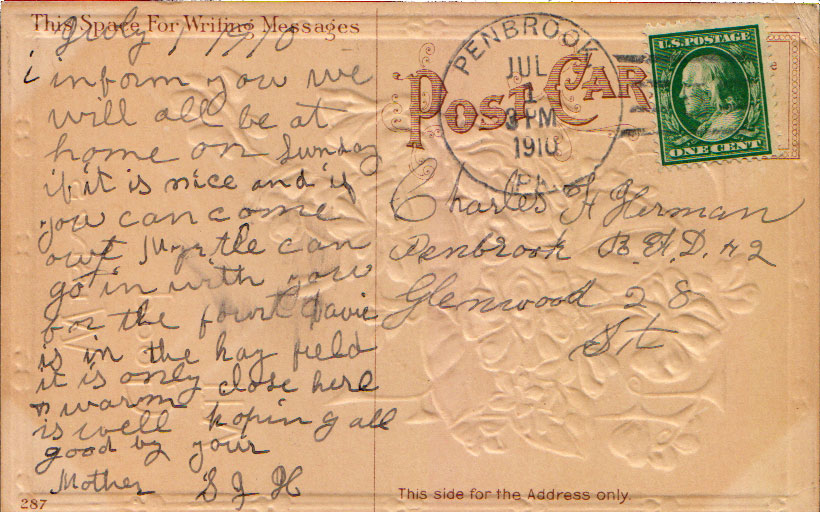 This Space For Writing Messages
July 1 1910
i inform you we
will all be at
home on Sunday
if it is nice and if
you can come
out Myrtle can
go in with you
for the fourt Davie
is in the hay field
it is only close here
& warm
is well hoping all
good by your
Mother S J H
287
POST CARD
PENBROOK
JUL
1
3 PM
1910
PA.
U.S. POSTAGE
ONE CENT
Charles H Herman
Penbrook R.F.D. #2
Glenwood 28
St
This side for the Address only.